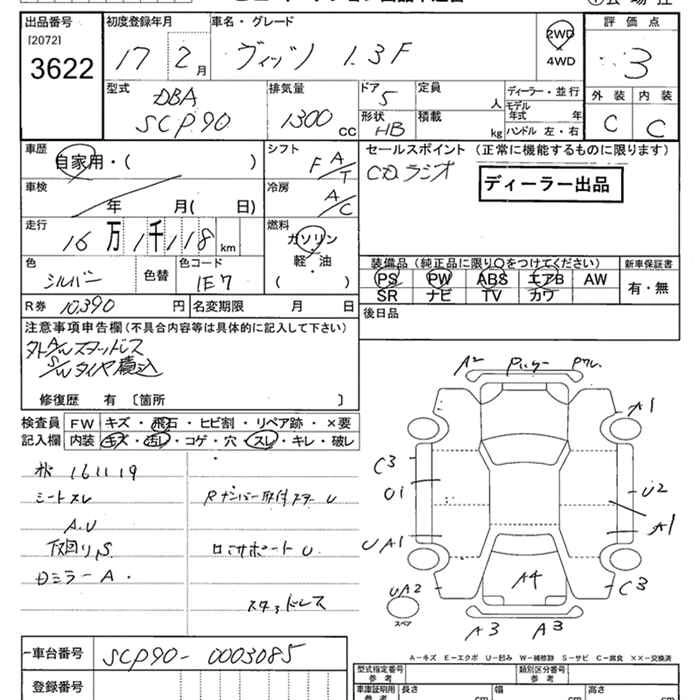 出品番号
[2072]
3622
初度登録年月
17 2月
車名・グレード
ヴィッツ 1.3F
2WD
・
4WD
評価点
3
外装 内装
C C
型式
DBA
SCP90
排気量
1300 cc
ドア
5
形状
HB
定員
人
積載
kg
ディーラー・並行
モデル
年式 年
ハンドル 左・右
車歴
自家用・( )
シフト
F A/T
車検
年 月( 日)
冷房
A/C
走行
16万1千118km
燃料
ガソリン
軽・油
( )
色
シルバー
色替
色コード
1E7
R券 10,390円
名変期限 月 日
セールスポイント (正常に機能するものに限ります)
CDラジオ
ディーラー出品
装備品 (純正品に限り○をつけてください)
新車保証書
PS PW ABS エアB AW
SR ナビ TV カワ
有・無
後日品
注意事項申告欄(不具合内容等は具体的に記入して下さい)
外A/Wスタッドレス
S/Wタイヤ積込
修復歴 有〔箇所 〕
検査員
記入欄
FW キズ・飛石・ヒビ割・リペア跡・×要
内装 キズ・汚レ・コゲ・穴・スレ・キレ・破レ
161119
シートスレ
A.U
Dミラー A.
Rナンバー取付ステー U
ロアサポート U.
スタッドレス
A2
A1
C3
U1
U2
A1
UA1
UA2
スペア
A4
C3
A3 A3
A-キズ E-エクボ U-凹み W-補修跡 S-サビ C-腐食 ××-交換済
車台番号
SCP90-0003085
登録番号
型式指定番号
参考
類別区分番号
参考
車庫証明用
参考
長さ
cm
幅
cm
高さ
cm